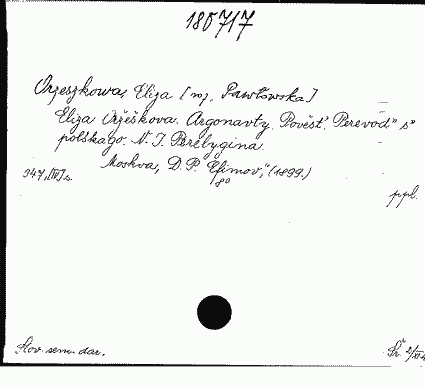 180717
Orzeszkowa, Eliza [roz. Pawłowska]
Eliza Oržeškova. Argonavty. Pověsť. Perevod" s"
polskago. N. I. Perelygina.
Moskva, D. P. Efimov", (1899.)
347, [IV] s. 8°
ppl.
Slov. sem. dar.